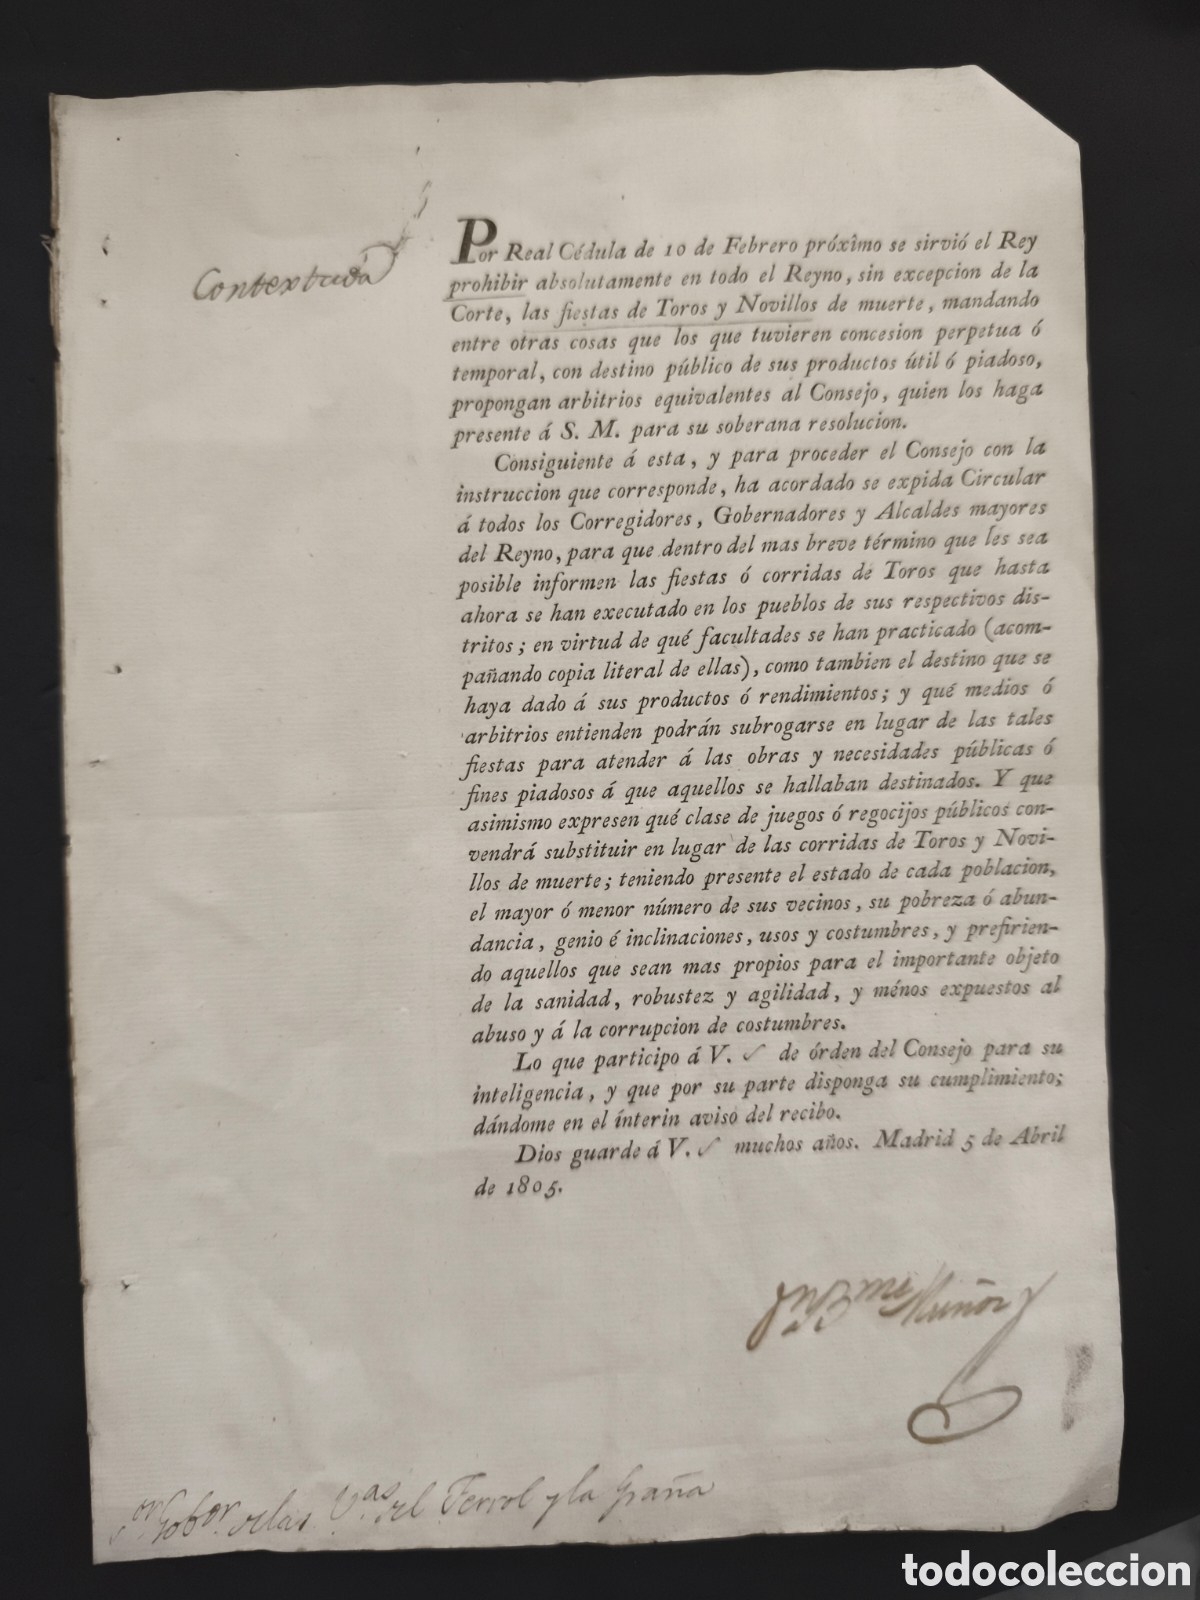 Contextada
Por Real Cédula de 10 de Febrero próximo se sirvió el Rey
prohibir absolutamente en todo el Reyno, sin excepcion de la
Corte, las fiestas de Toros y Novillos de muerte, mandando
entre otras cosas que los que tuvieren concesion perpetua ó
temporal, con destino público de sus productos útil ó piadoso,
propongan arbitrios equivalentes al Consejo, quien los haga
presente á S. M. para su soberana resolucion.
Consiguiente á esta, y para proceder el Consejo con la
instruccion que corresponde, ha acordado se expida Circular
á todos los Corregidores, Gobernadores y Alcaldes mayores
del Reyno, para que dentro del mas breve término que les sea
posible informen las fiestas ó corridas de Toros que hasta
ahora se han executado en los pueblos de sus respectivos dis-
tritos; en virtud de qué facultades se han practicado (acom-
pañando copia literal de ellas), como tambien el destino que se
haya dado á sus productos ó rendimientos; y qué medios ó
arbitrios entienden podrán subrogarse en lugar de las tales
fiestas para atender á las obras y necesidades públicas ó
fines piadosos á que aquellos se hallaban destinados. Y que
asimismo expresen qué clase de juegos ó regocijos públicos con-
vendrá substituir en lugar de las corridas de Toros y Novi-
llos de muerte; teniendo presente el estado de cada poblacion,
el mayor ó menor número de sus vecinos, su pobreza ó abun-
dancia, genio é inclinaciones, usos y costumbres, y prefirien-
do aquellos que sean mas propios para el importante objeto
de la sanidad, robustez y agilidad, y ménos expuestos al
abuso y á la corrupcion de costumbres.
Lo que participo á V. S de órden del Consejo para su
inteligencia, y que por su parte disponga su cumplimiento;
dándome en el ínterin aviso del recibo.
Dios guarde á V. S muchos años. Madrid 5 de Abril
de 1805.
Bme Muñoz
Sor Gobor delas Vas del Ferrol y la Graña
todocoleccion